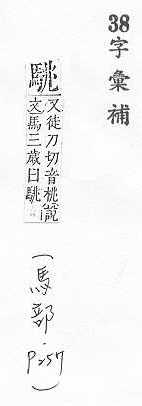 38字彙補
駣
又徒刀切音桃說
文馬三歲曰駣
(馬部.
P257)